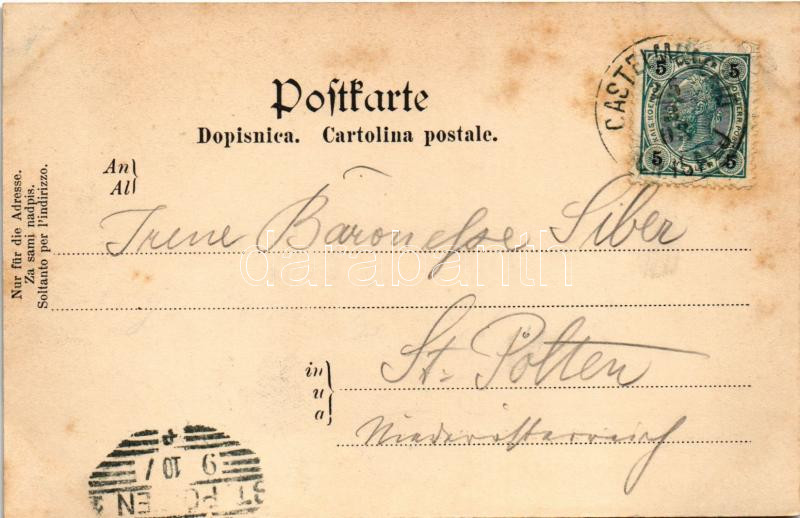 Postkarte
Dopisnica. Cartolina postale.
An
Al
Nur für die Adresse.
Za sami nadpis.
Soltanto per l'indirizzo.
Irene Baronesse Siber
St. Pölten
in
u
a
Niederösterreich
5 5
5 5
CASTELNU
darabanth
9 10
ST. PÖLTEN 1